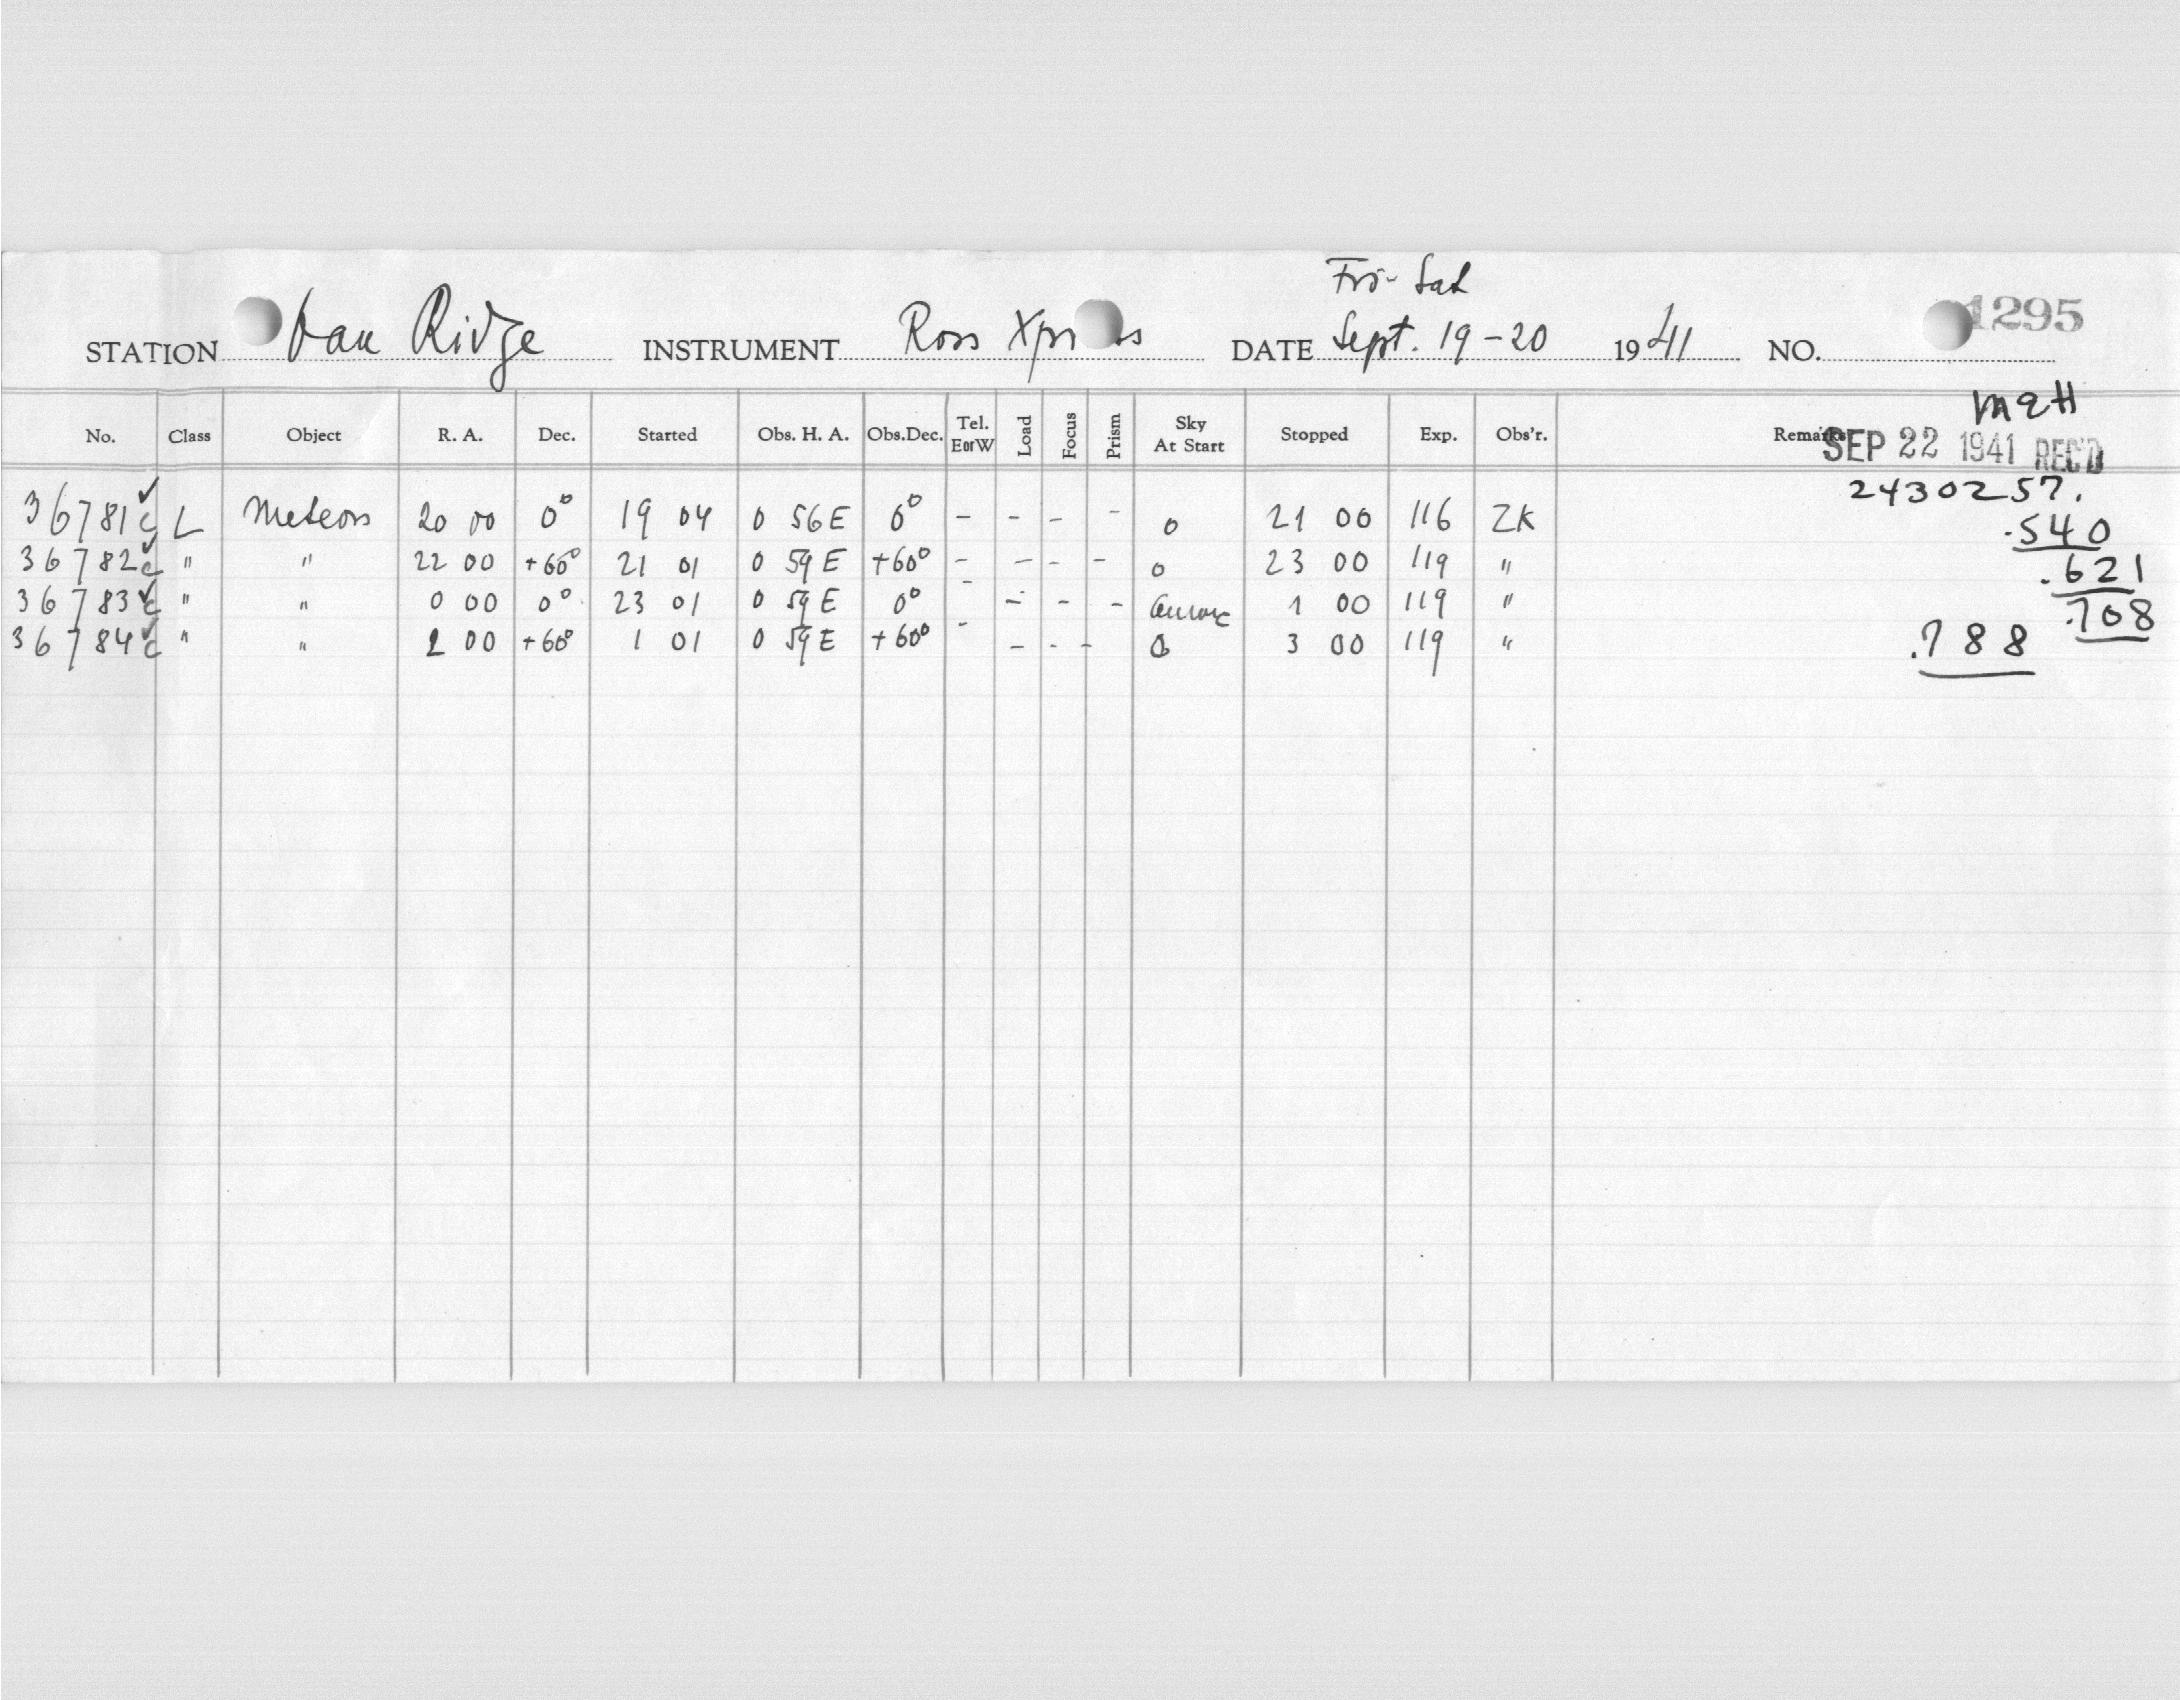 Fri - Sat
STATION Oak Ridge INSTRUMENT Ross Xpress DATE Sept. 19-20 1941 NO. 1295
MQH
No. Class Object R. A. Dec. Started Obs. H. A. Obs.Dec. Tel. E or W Load Focus Prism Sky At Start Stopped Exp. Obs'r. Remarks
SEP 22 1941 REC'D
2430257.
36781 ✓ c L Meteors 20 00 0° 19 04 0 56 E 0° - - - - 0 21 00 116 ZK .540
36782 ✓ c " " 22 00 +60° 21 01 0 59 E +60° - - - - 0 23 00 119 " .621
36783 ✓ c " " 0 00 0° 23 01 0 59 E 0° - - - - 1 00 119 " .708
36784 ✓ c " " 2 00 +60° 1 01 0 59 E +60° - - - - 0 3 00 119 " .788